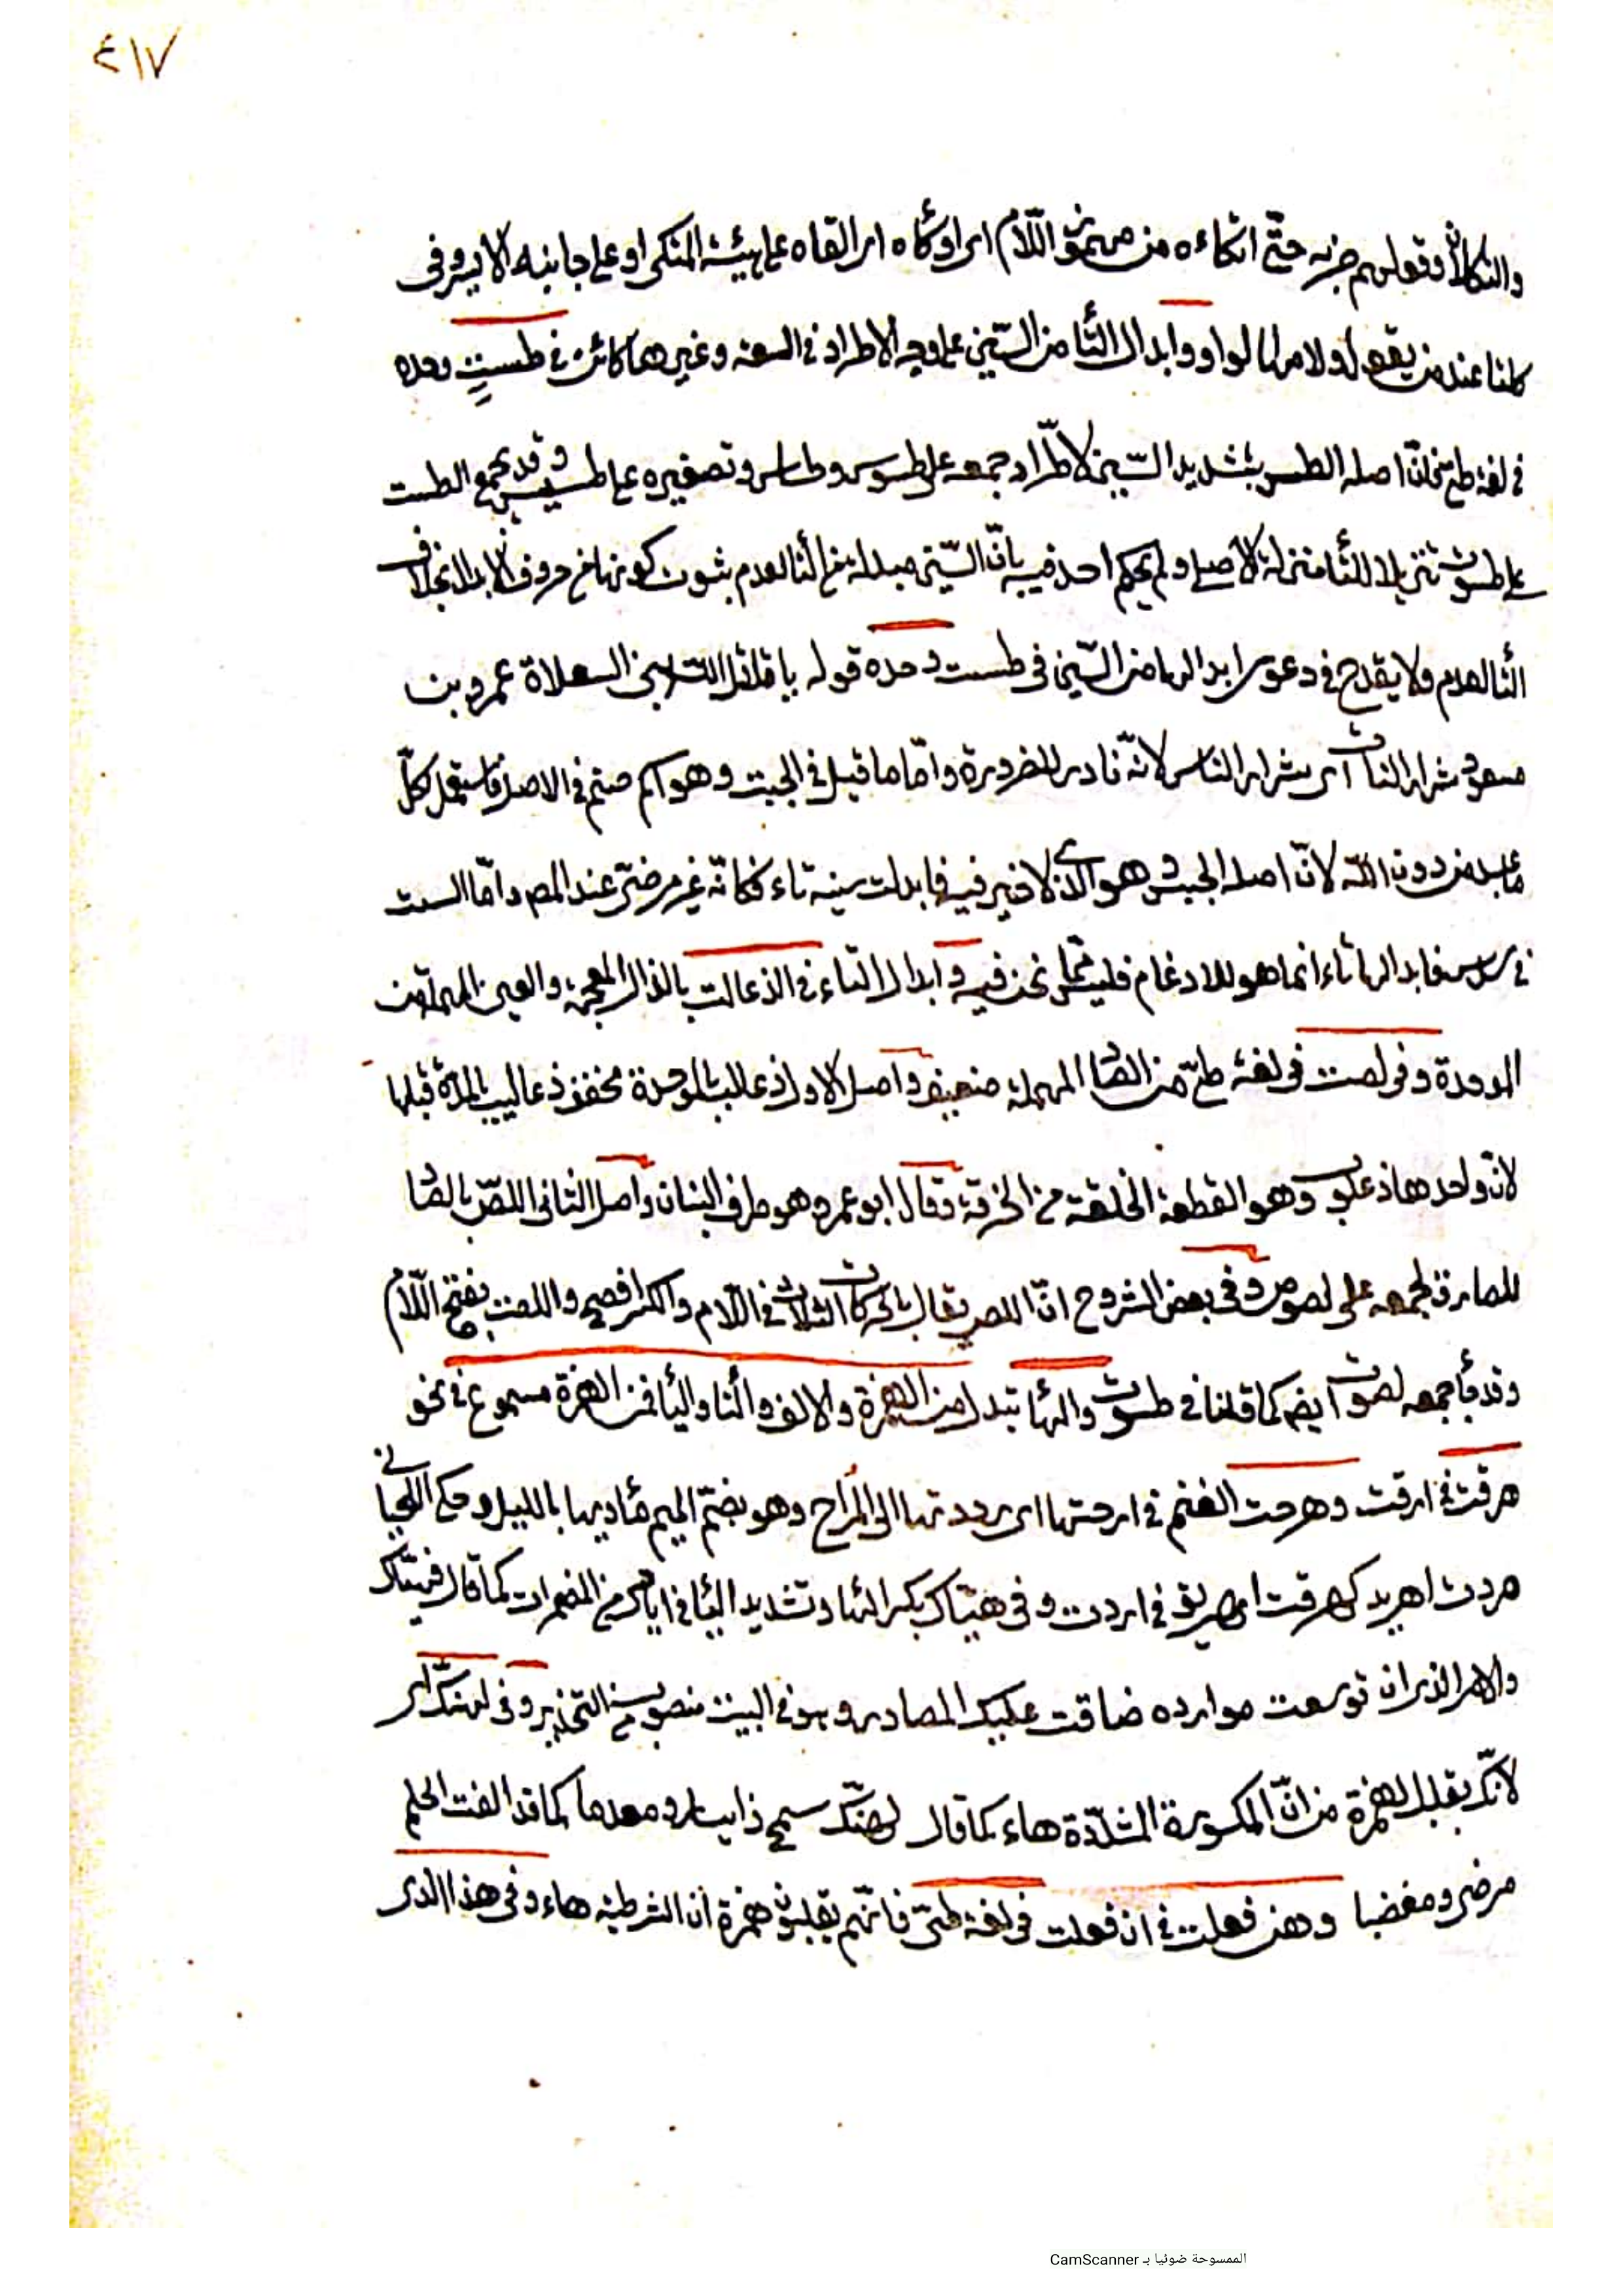 ٤١٧
والتكلان وقولهم ضربه حتّى اتكاءه من مهموز اللّام اى اوكأه اى القاه على هيئة المتكى او على جانبه الايسر وفى
كلتا عند من يقول لامها الواو وابدال التّا من السّين على وجه الاطراد فى السعة وغيرها كائن فى طست وحده
فى لغة طىّ فانّ اصله الطس بتشديد السّين لاطّراد جمعه على طسوس وطساس وتصغيره على طسيس وقد يجمع الطست
على طسوت تنزيلا للتّا منزلة الاصلى ولم يحكم احد فيه بانّ السّين مبدلة من التّا لعدم ثبوت كونها من حروف الابدال بخلاف
التّا لعدم ولا يقدح فى دعوى ابدالها من السّين فى طست وحده قوله يا قاتل اللّه بنى السعلاة عمرو بن
مسعود شرار النات اى شرار الناس لانّه نادر للضرورة وامّا ما قيل فى الجبت وهو اسم صنم فى الاصل فاستعمل لكلّ
ما عبد من دون اللّه لانّ اصله الجبس وهو الذى لا خير فيه فابدلت سينه تاء فكانّه غير مرضىّ عند المص وامّا الست
فى سدس فابدالها تاء انما هو للادغام فليس ممّا نحن فيه وابدال التاء فى الذعالت بالذال المعجمة والعين المهملة من
الموحدة وفى لصت فى لغة طىّ من الصّاد المهملة ضعيف واصل الاول ذعالب بالموحدة مخفف ذعاليب بالمدّة قبلها
لانّ واحدها ذعلوب وهو القطعة الخلقة من الخرقة وقال ابو عمرو هو طرف البنان واصل الثانى اللصّ بالصّاد
لجمعه على لصوص وفى بعض الشروح انّ اللص يقال بالحركات الثلاث فى اللّام والكسر افصح واللصت بفتح اللّام
وقد جأ جمعه لصوت ايضا كما قلنا فى طسوت والهأ تبدل من الهمزة والالف والتا واليأ فمن الهمزة مسموع فى نحو
هرقت فى ارقت وهرحت الغنم فى ارحتها اى رددتها الى المُراح وهو بضمّ الميم مأويها بالليل وحكى اللحيانى
هردت اهريد كهرقت اهريق فى اردت وفى هيّاك بكسر الها وتشديد اليأ فى ايّاك من المضمرات كما قال فهيّاك
والامر الذى ان توسعت موارده ضاقت عليك المصادر وهو فى البيت منصوب من التحذير وفى لهنّك اى
لانّك بقلب الهمزة من انّ المكسورة المشدّدة هاء كما قال لهنّك سمح ذا يسار ومعدما كما قد الفت الحلم
مرضى ومغضبا وهن فعلت فى ان فعلت فى لغة طىّ فانّهم يقلبون همزة ان الشرطية هاء وفى هذا الذى
الممسوحة ضوئيا بـ CamScanner